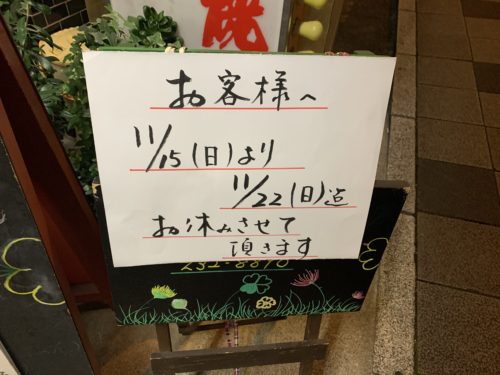 お客様へ
11/15(日)より
11/22(日)迄
お休みさせて
頂きます